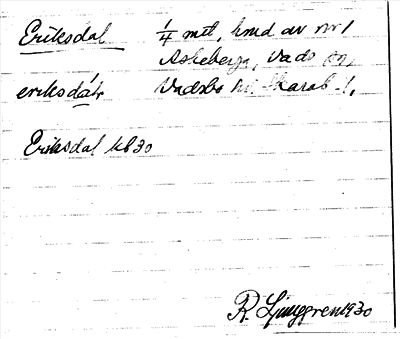 Eriksdal 1/4 mtl, hmd av nr 1
Askeberga, Vads sn,
eriksdál Vadsbo hd. Skarab. l.
Eriksdal kb 30
R. Ljunggren 1930